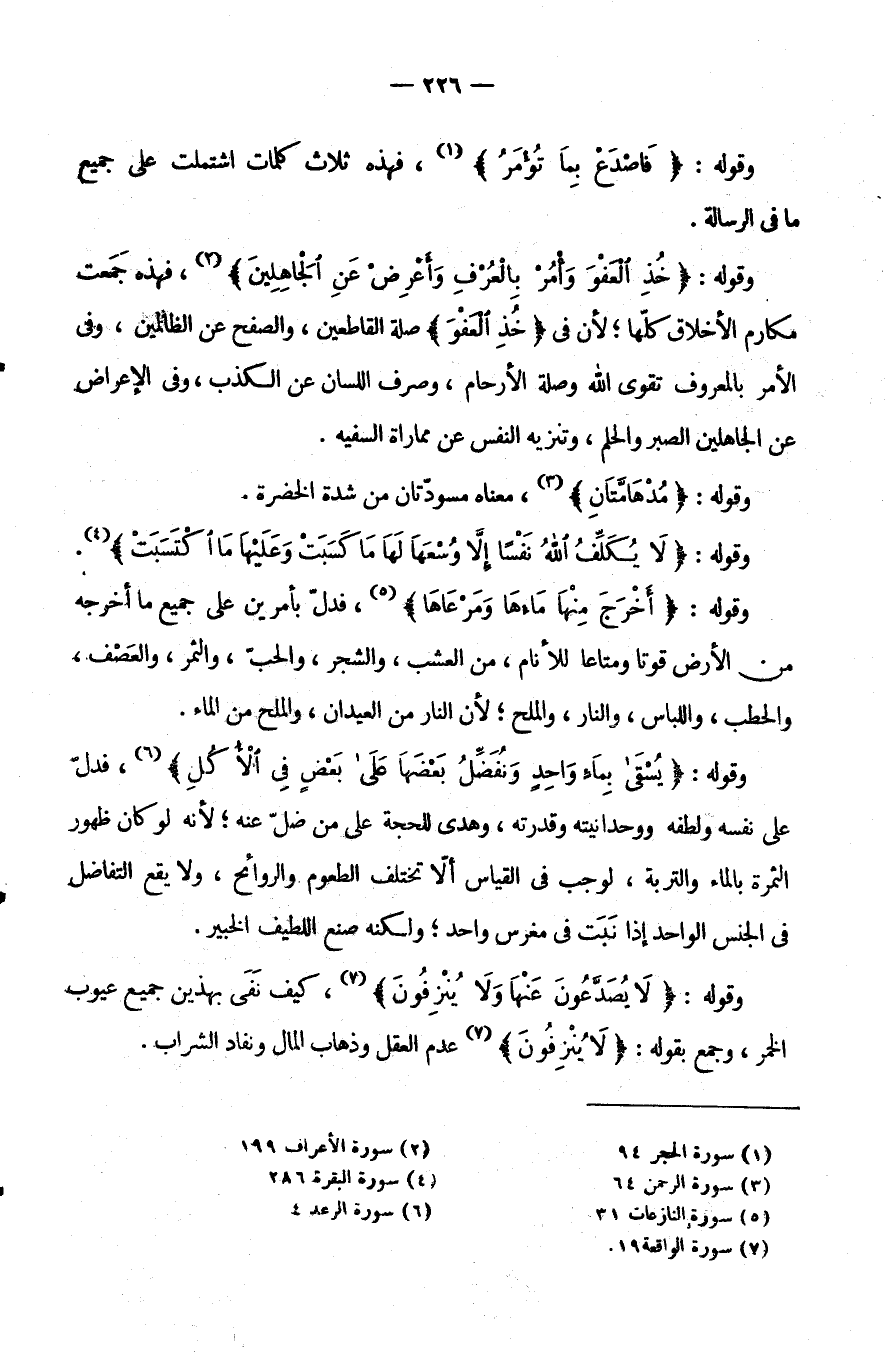 — ٢٢٦ —
وقوله : ﴿ فَاصْدَعْ بِمَا تُؤْمَرُ ﴾ (١) ، فهذه ثلاث كلمات اشتملت على جميع
ما فى الرسالة .
وقوله : ﴿ خُذِ ٱلْعَفْوَ وَأْمُرْ بِالْعُرْفِ وَأَعْرِضْ عَنِ ٱلْجَاهِلِينَ ﴾ (٢) ، فهذه جَمَعت
مكارم الأخلاق كلّها ؛ لأن فى ﴿ خُذِ ٱلْعَفْوَ ﴾ صلة القاطعين ، والصفح عن الظالمين ، وفى
الأمر بالمعروف تقوى الله وصلة الأرحام ، وصرف اللسان عن الكذب ، وفى الإعراض
عن الجاهلين الصبر والحلم ، وتنزيه النفس عن مماراة السفيه .
وقوله : ﴿ مُدْهَامَّتَانِ ﴾ (٣) ، معناه مسودّتان من شدة الخضرة .
وقوله : ﴿ لَا يُكَلِّفُ ٱللهُ نَفْسًا إِلَّا وُسْعَهَا لَهَا مَا كَسَبَتْ وَعَلَيْهَا مَا ٱكْتَسَبَتْ ﴾ (٤) .
وقوله : ﴿ أَخْرَجَ مِنْهَا مَاءَهَا وَمَرْعَاهَا ﴾ (٥) ، فدلّ بأمرين على جميع ما أخرجه
من الأرض قوتا ومتاعا للأنام ، من العشب ، والشجر ، والحبّ ، والثمر ، والعَصْف ،
والحطب ، واللباس ، والنار ، والملح ؛ لأن النار من العيدان ، والملح من الماء .
وقوله : ﴿ يُسْقَىٰ بِمَاءٍ وَاحِدٍ وَنُفَضِّلُ بَعْضَهَا عَلَىٰ بَعْضٍ فِي ٱلْأُكُلِ ﴾ (٦) ، فدلّ
على نفسه ولطفه ووحدانيته وقدرته ، وهدى للحجة على من ضلّ عنه ؛ لأنه لو كان ظهور
الثمرة بالماء والتربة ، لوجب فى القياس ألّا تختلف الطعوم والروائح ، ولا يقع التفاضل
فى الجنس الواحد إذا نَبَتَ فى مغرس واحد ؛ ولكنه صنع اللطيف الخبير .
وقوله : ﴿ لَا يُصَدَّعُونَ عَنْهَا وَلَا يُنْزِفُونَ ﴾ (٧) ، كيف نَفَى بهذين جميع عيوب
الخمر ، وجمع بقوله : ﴿ لَا يُنْزِفُونَ ﴾ (٧) عدم العقل وذهاب المال ونفاد الشراب .
(١) سورة الحجر ٩٤
(٢) سورة الأعراف ١٩٩
(٣) سورة الرحمن ٦٤
(٤) سورة البقرة ٢٨٦
(٥) سورة النازعات ٣١
(٦) سورة الرعد ٤
(٧) سورة الواقعة ١٩ .